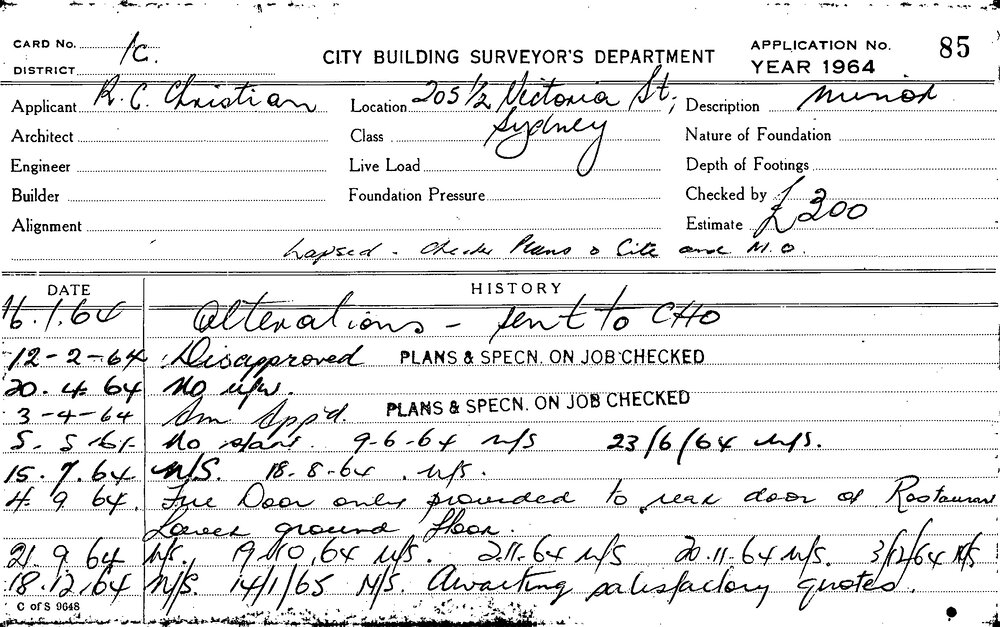 CARD No. 1c. CITY BUILDING SURVEYOR'S DEPARTMENT APPLICATION No. 85
DISTRICT YEAR 1964
Applicant R. C. Christian Location 205 1/2 Victoria St, Description Minor
Architect Class Sydney Nature of Foundation
Engineer Live Load Depth of Footings
Builder Foundation Pressure Checked by
Alignment Estimate £200
Lapsed - Plans & Cite and M.O.
DATE HISTORY
16.1.64 Alterations - sent to CHO
12-2-64 Disapproved PLANS & SPECN. ON JOB CHECKED
20.4.64 No
3-4-64 App'd. PLANS & SPECN. ON JOB CHECKED
5.5.64 No start. 9-6-64 N/S 23/6/64 N/S.
15.7.64 N/S. 18-8-64. N/S.
4.9.64. Fire Door only provided to rear door of Restaurant
Lower ground floor.
21.9.64 N/S. 9.10.64 N/S. 2.11.64 N/S 20.11.64 N/S. 3/12/64 N/S
18.12.64 N/S. 14/1/65 N/S. Awaiting satisfactory quotes.
C of S 9648